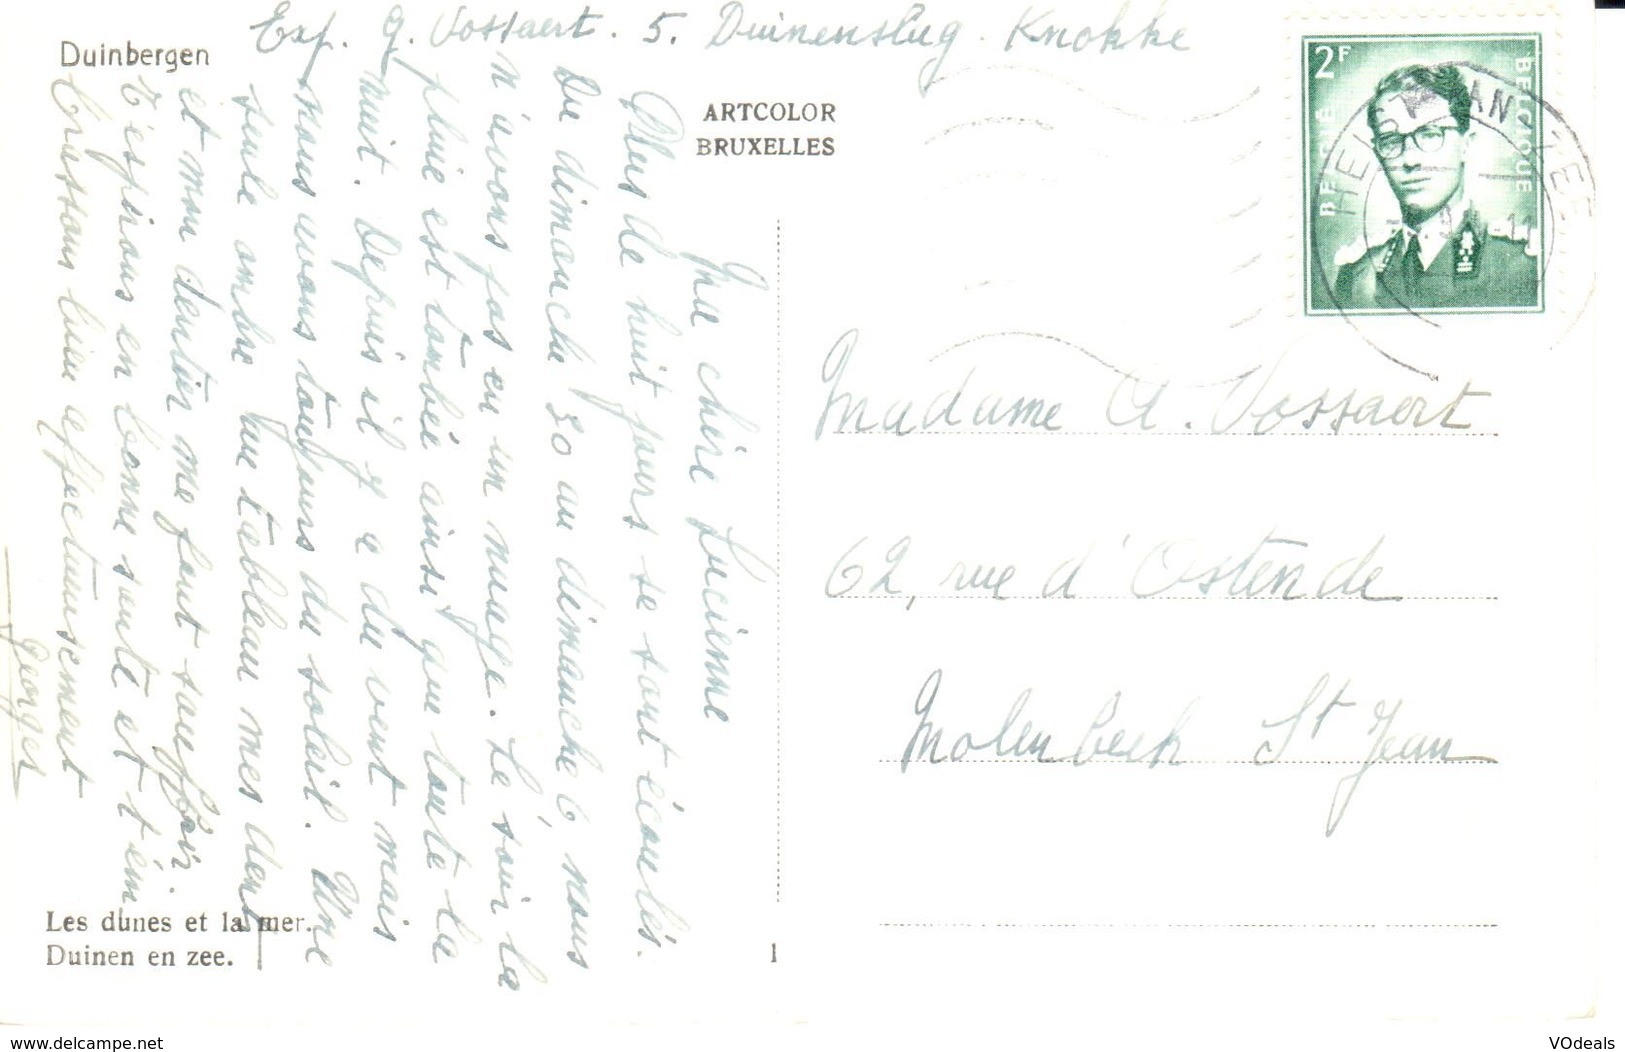 Exp. G. Vossaert. 5. Duinenslug. Knokke
Duinbergen
ARTCOLOR
BRUXELLES
2F
BELGIE
BELGIQUE
HEIST-AAN-ZEE
Ma chère Lucienne
Plus de huit jours se sont écoulés.
Du dimanche 30 au dimanche 6, nous
n'avons pas eu un nuage. Le soir la
pluie est tombée ainsi que toute la
nuit. Depuis il y a du vent mais
nous avons toujours du soleil. Une
seule ombre au tableau mes dents
et mon dentier me font souffrir.
T'espérons en bonne santé et t'em
brassons bien affectueusement
Georges
Madame A. Vossaert
62, rue d'Ostende
Molenbeek St Jean
Les dunes et la mer.
Duinen en zee.
1
www.delcampe.net
VOdeals